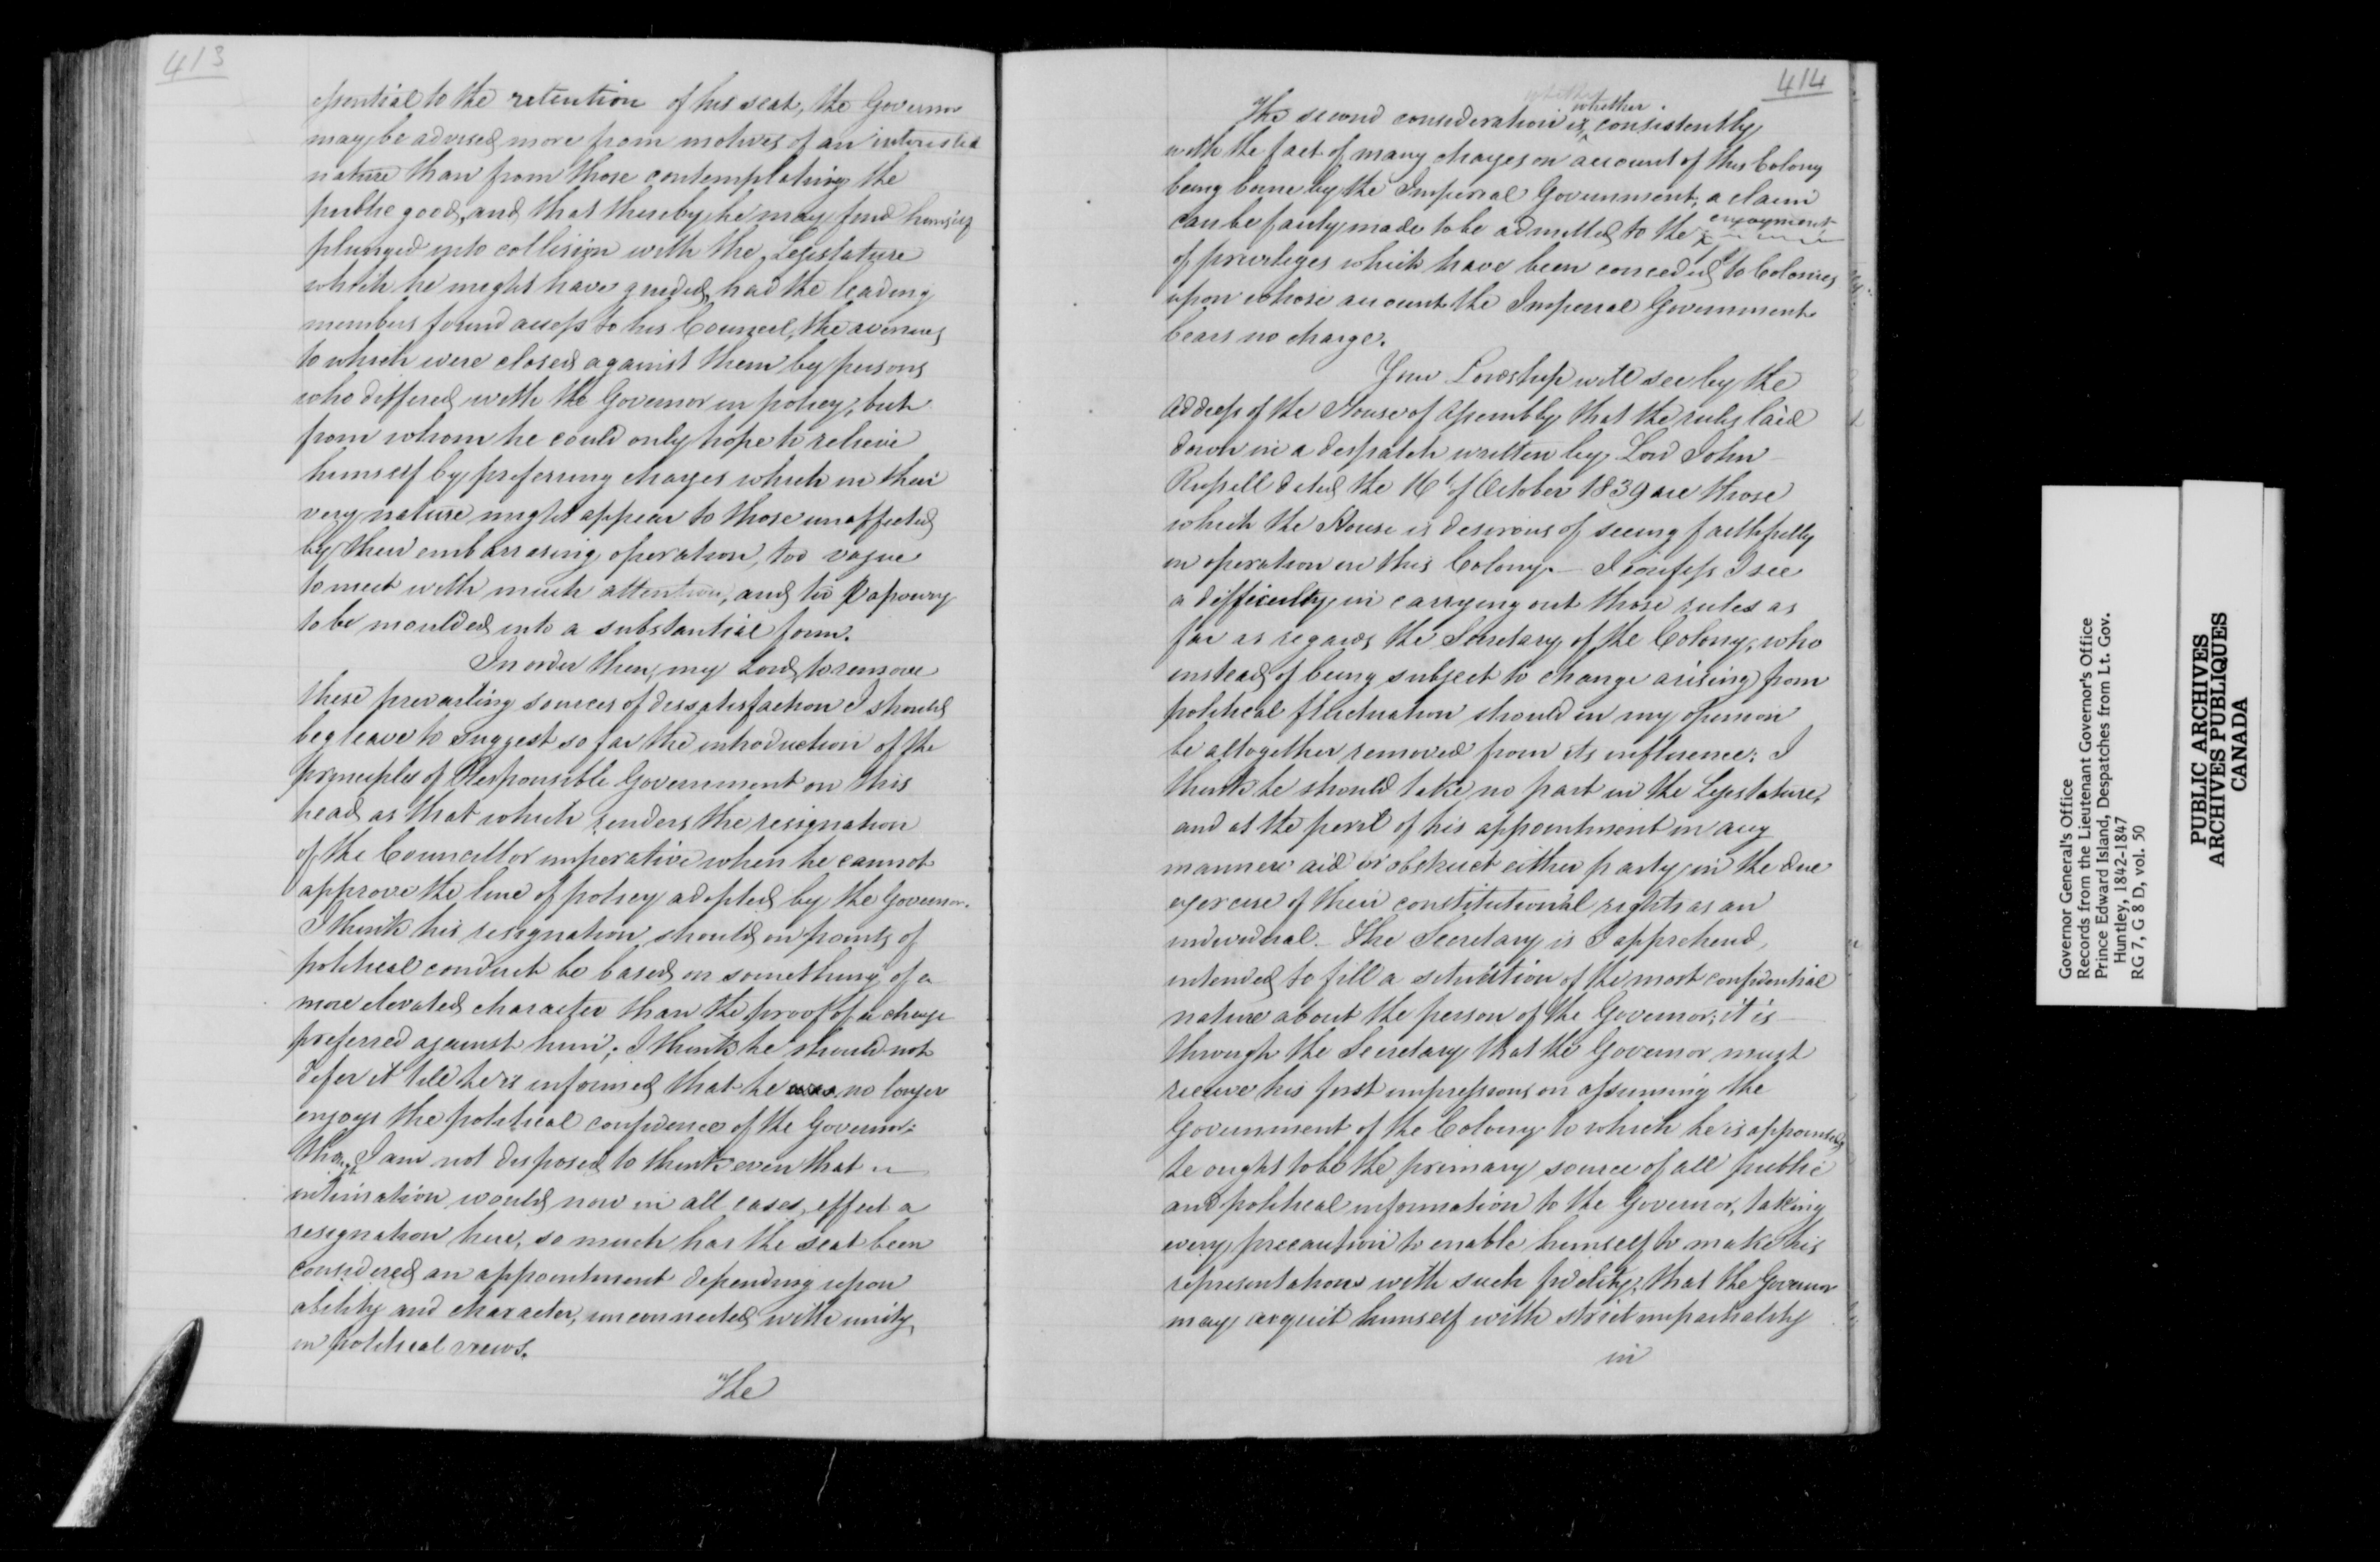 413
essential to the retention of his seat, the Governor
may be advised more from motives of an interested
nature than from those contemplating the
public good, and that thereby he may find himself
plunged into collision with the Legislature
which he might have guided, had the leading
members found access to his Council, the avenues
to which were closed against them by persons
who differed with the Governor in policy, but
from whom he could only hope to relieve
himself by preferring charges which in their
very nature might appear to those unaffected
by their embarrasing operation, too vague
to meet with much attention, and too vapoury
to be moulded into a substantial form.
In order then, my Lord, to remove
these prevailing sources of dissatisfaction I should
beg leave to suggest so far the introduction of the
principles of Responsible Government on this
head as that which renders the resignation
of the Councellor imperative when he cannot
approve the line of policy adopted by the Governor.
I think his resignation should on points of
political conduct be based on something of a
more elevated character than the proof of a charge
preferred against him; I think he should not
defer it till he is informed that he was no longer
enjoys the political confidence of the Governor:
tho' I am not disposed to think even that
intimation would now in all cases, effect a
resignation here, so much has the seat been
considered an appointment depending upon
ability and character, unconnected with unity
in political views.
The
414
whether whether
The second consideration is, consistently
with the fact of many charges on account of this Colony
being borne by the Imperial Government, a claim
enjoyment
can be fairly made to be admitted to the
of privileges which have been conceded to Colonies
upon whose account the Imperial Government
bears no charge.
Your Lordship will see by the
address of the House of Assembly that the rules laid
down in a despatch written by Lord John
Russell dated the 16t of October 1839 are those
which the House is desirous of seeing faithfully
in operation in this Colony. — I confess I see
a difficulty in carrying out those rules as
far as regards the Secretary of the Colony, who
instead of being subject to change arising from
political fluctuation should in my opinion
be altogether removed from its influence: I
think he should take no part in the Legislature,
and at the peril of his appointment in any
manner aid or obstruct either party in the due
exercise of their constitutional rights as an
individual. The Secretary is I apprehend,
intended to fill a situation of the most confidential
nature about the person of the Governor; it is
through the Secretary that the Governor must
receive his first impressions on assuming the
Government of the Colony to which he is appointed,
he ought to be the primary source of all public
and political information to the Governor, taking
every precaution to enable himself to make his
representations with such fidelity, that the Governor
may acquit himself with strict impartiality
in
Governor General's Office
Records from the Lieutenant Governor's Office
Prince Edward Island, Despatches from Lt. Gov.
Huntley, 1842-1847
RG 7, G 8 D, vol. 50
PUBLIC ARCHIVES
ARCHIVES PUBLIQUES
CANADA